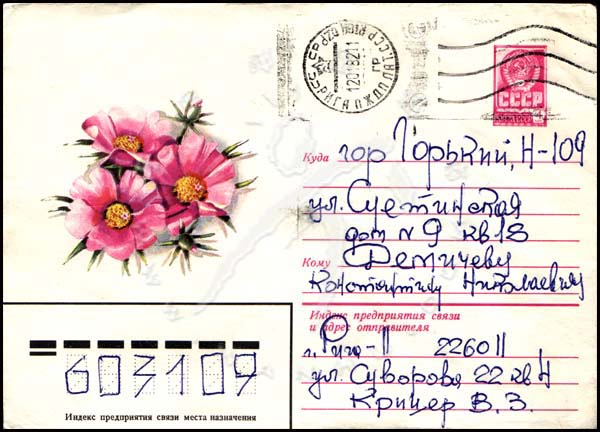 СССР
РИГА ПЖДП
120182 11
Куда гор Горький, Н-109
ул. Суетинская
дом № 9 кв 18
Кому Демичеву
Константину Николаевичу
Индекс предприятия связи
и адрес отправителя
г. Рига-11 226011
ул. Суворова 22 кв 4
Крицер В. З.
603109
Индекс предприятия связи места назначения